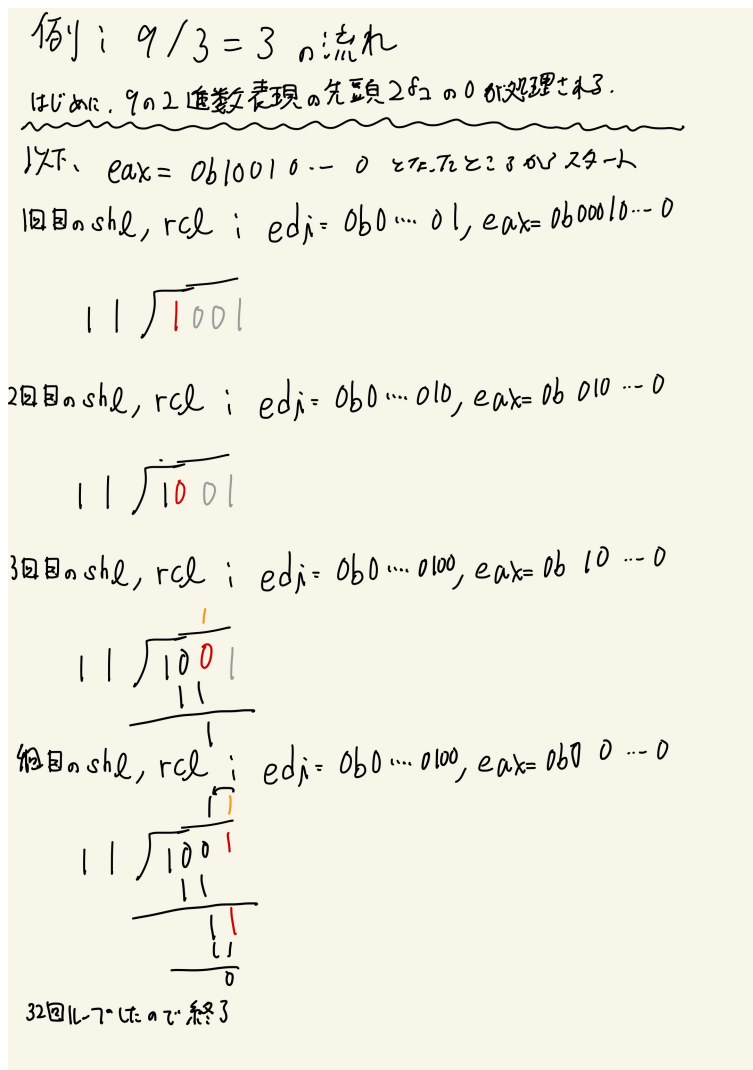 例; 9/3=3 の流れ
はじめに、9の2進数表現の先頭28この0が処理される.
以下、eax= 0b10010…0 となったところからスタート
1回目のshl, rcl ; edi= 0b0….01, eax= 0b00010…0
11 1001
2回目のshl, rcl ; edi= 0b0….010, eax= 0b 010…0
11 1001
3回目のshl, rcl ; edi= 0b0….0100, eax= 0b 10…0
1
11 1001
11
1
回目のshl, rcl ; edi= 0b0….0100, eax= 0b0 0…0
11
11 1001
11
11
11
0
32回ループしたので終了